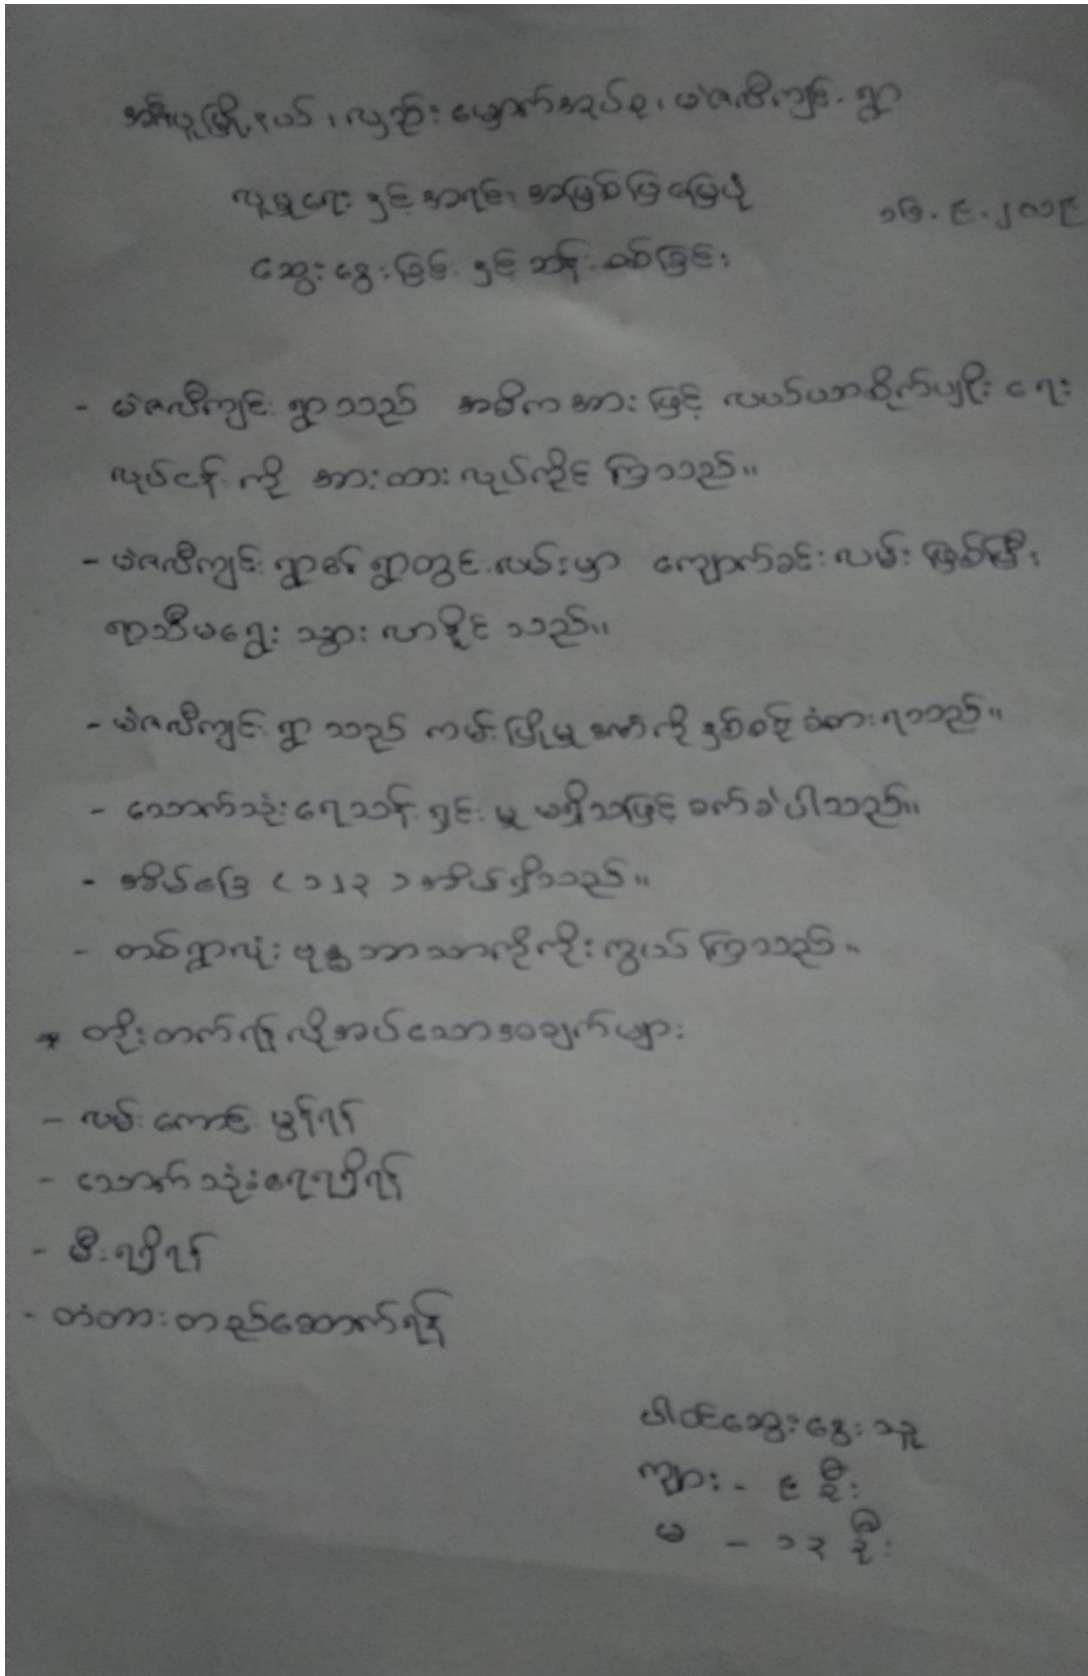 အိမ်မဲမြို့နယ်၊ လှည်းမှောက်အုပ်စု၊ မဲဇလီကျင်းရွာ
လူမှုရေး နှင့် အရင်းအမြစ်ပြမြေပုံ
၁၆.၉.၂၀၁၉
ဆွေးနွေးခြင်း နှင့် ဆန်းစစ်ခြင်း
- မဲဇလီကျင်း ရွာသည် အဓိကအားဖြင့် လယ်ယာစိုက်ပျိုးရေး
လုပ်ငန်းကို အားထားလုပ်ကိုင်ကြသည်။
- မဲဇလီကျင်း ရွာ၏ ရွာတွင်းလမ်းမှာ ကျောက်ခင်းလမ်း ဖြစ်ပြီး
ရာသီမရွေး သွားလာနိုင်သည်။
- မဲဇလီကျင်း ရွာသည် ကမ်းပြိုမှုဒဏ်ကို နှစ်စဉ် ခံစားရသည်။
- သောက်သုံးရေသန့်ရှင်းမှု မရှိသဖြင့် ခက်ခဲပါသည်။
- အိမ်ခြေ (၁၂၃) အိမ်ရှိသည်။
- တစ်ရွာလုံး ဗုဒ္ဓဘာသာကိုကိုးကွယ်ကြသည်။
* တိုးတက်ရန်လိုအပ်သောအချက်များ
- လမ်းကောင်းမွန်ရန်
- သောက်သုံးရေရရှိရန်
- မီးရရှိရန်
- တံတားတည်ဆောက်ရန်
ပါဝင်ဆွေးနွေးသူ
ကျား - ၉ ဦး
မ - ၁၃ ဦး